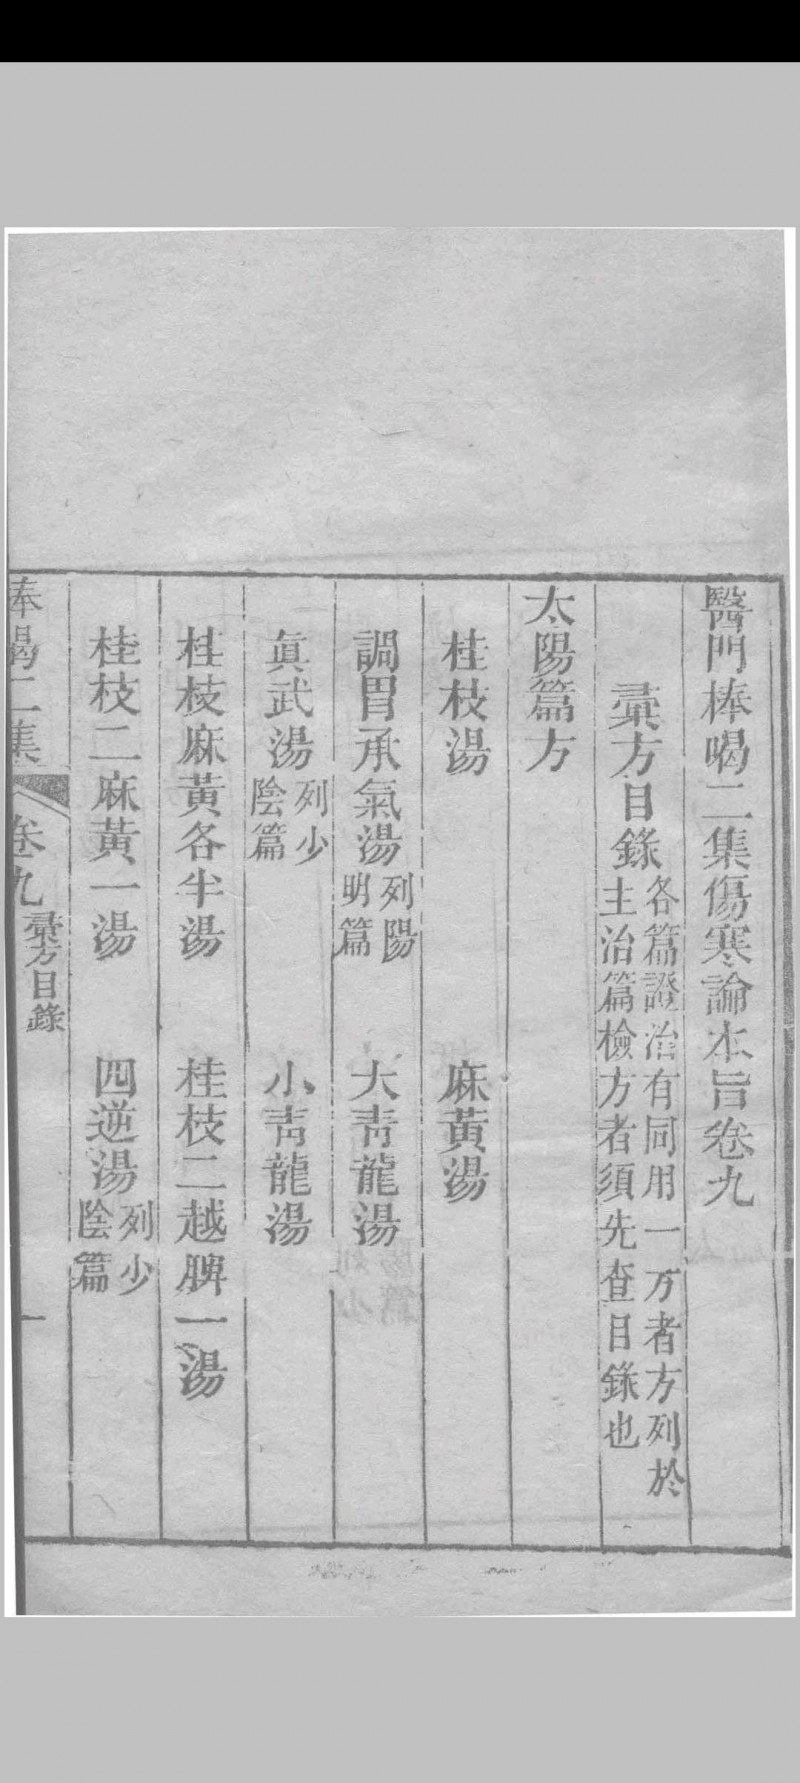 醫門棒喝二集傷寒論本旨卷九
彙方目錄
各篇證治有同用一方者方列於
主治篇檢方者須先查目錄也
太陽篇方
桂枝湯　麻黃湯
調胃承氣湯列陽明篇　大青龍湯
眞武湯列少陰篇　小青龍湯
桂枝麻黃各半湯　桂枝二越脾一湯
桂枝二麻黃一湯　四逆湯列少陰篇
棒喝二集　卷九　彙方目錄　一